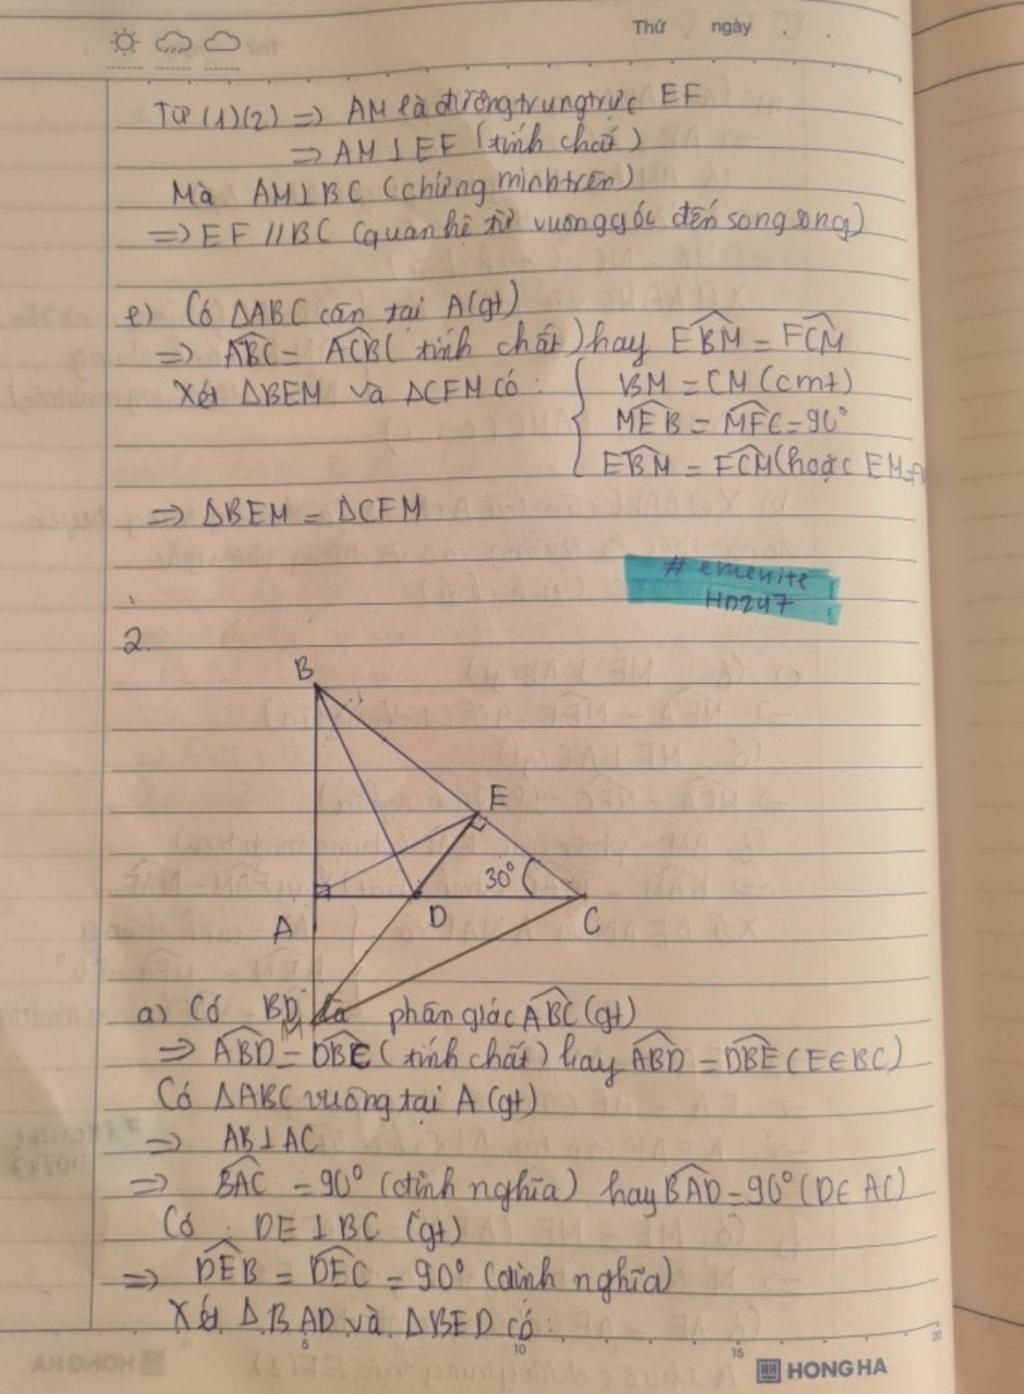 Thứ ngày
Từ (1)(2) => AM là đường trung trực EF
=> AM⊥EF (tính chất)
Mà AM⊥BC (chứng minh trên)
=> EF//BC (quan hệ từ vuông góc đến song song)
e) Có ΔABC cân tại A(gt)
=> \widehat{ABC} = \widehat{ACB} (tính chất) hay \widehat{EBM} = \widehat{FCM}
Xét ΔBEM và ΔCFM có: { BM = CM (cmt)
\widehat{MEB} = \widehat{MFC} = 90°
\widehat{EBM} = \widehat{FCM} (hoặc EM=
=> ΔBEM = ΔCFM
HD247
2.
B
E
30°
A
D
C
M
a) Có BD là phân giác \widehat{ABC} (gt)
=> \widehat{ABD} = \widehat{DBC} (tính chất) hay \widehat{ABD} = \widehat{DBE} (E∈BC)
Có ΔABC vuông tại A (gt)
=> AB⊥AC
=> \widehat{BAC} = 90° (định nghĩa) hay \widehat{BAD} = 90° (D∈AC)
Có DE⊥BC (gt)
=> \widehat{DEB} = \widehat{DEC} = 90° (định nghĩa)
Xét ΔBAD và ΔBED có:
5 10 15 20
HONG HA